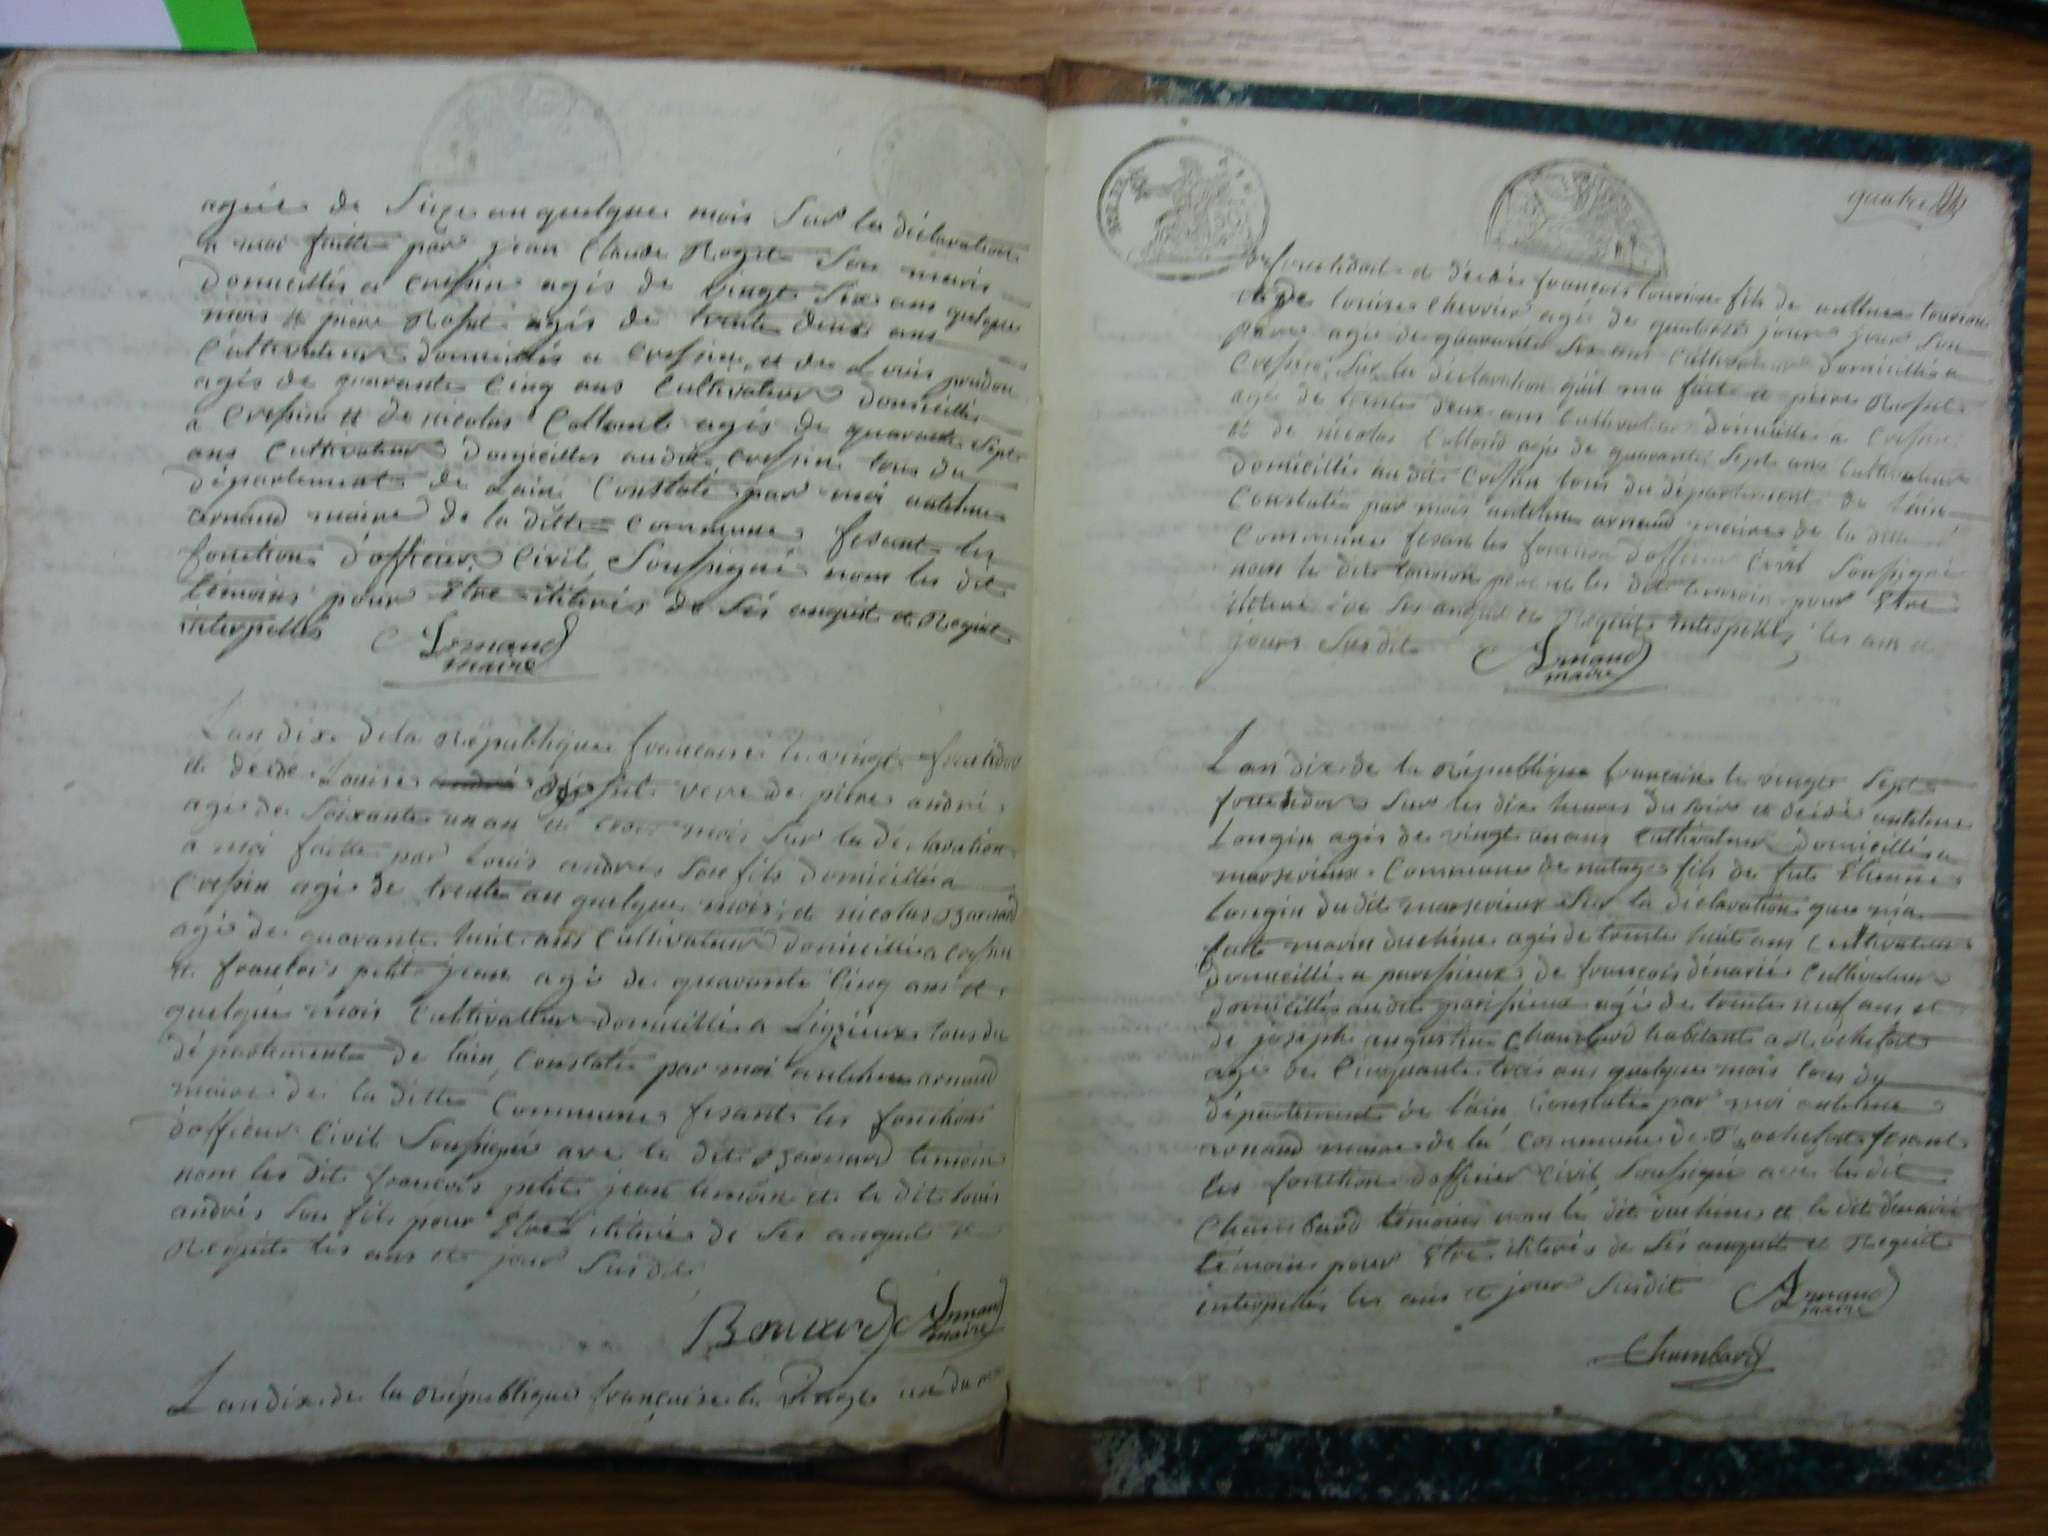 agée de Sixe an quelque mois Sur la déclaration
a moi faitte par jean Claude Roget Son maris
Domicilliés a Cressin agés de vingt Six ans quelque
mois et piere Rosset agés de trente deux ans
Cultivateur domicilliés a Cressin, et de Louis prudon
agés de quarante Cinq ans Cultivateur domicilliés
a Cressin et de nicolas Collomb agés de quarante Sept
ans Cultivateur Domicilliés audit Cressin tous du
département de Lain Constaté par moi antelme
arnaud maire de la ditte Commune fesant les
fonctions d'officier Civil Soussigné nom les dit
témoins pour Etre iliterés de Ses enquist et Requit
interpellés
Arnaud
maire
Lan dixe de la République francaise le vingt fructidor
et decedé Louise dufut veve de piere andré
agé de Soixante un an et trois mois Sur la declaration
a moi faitte par Louis andrés Son fils domicillié a
Cressin agés de trente an quelque mois, et nicolas Barnard
agés de quarante huit ans Cultivateur domicillié a Cressin
et francois petit jean agé de quarante Cinq ans et
quelque mois Cultivatteur domicillié a Ligzieux tous du
département de lain, Constatés par moi antelme arnaud
maire de la ditte Commune fesant les fonctions
d'officier Civil Soussigné ave le dit Barnard temoin
nom les dit francois petit jean temoin et le dit louis
andrés Son fils pour Etre iliteré de Ses enquit et
Requit les ans et jour Susdit
Bernard Arnaud
maire
Lan dixe de la République française le vingt un du mois
quatre
de fructidort et décédé francois tourion fils de antelme tourion
et de louise Chevrier agé de quatorze jour Son
pere agé de quarante Six ans Cultivateur domicilliés a
Cressin, Sur la déclaration quil ma fait et piere Rosset
agé de trente deux ans Cultivateur domicilliés a Cressin
et de nicolas Collomb agés de quarante Sept ans Cultivateur
Domicilliés audit Cressin tous du département de Lain
Constatés par mois antelme arnaud maire de la ditte
Commune fesant les fonction d'officier Civil Soussigné
nom le dit tourion pere et les dit temoin pour Etre
iliteré de Ses enquit et Requit interpellés les ans et
jours Susdit
Arnaud
maire
Lan dixe de la République francaise le vingt Sept
fructidor Sur les dix heures du Soir et décédé antelme
Longin agés de vingt un ans Cultivateur domicilliés a
marsevieux Commune de natage fils de fut Etienne
Longin dudit marsevieux Sur la déclaration que ma
faite marin duchène agés de trente huit ans Cultivateur
domicillié a parissieux de françois dénarié Cultivateur
domicilliés audit parissieux agé de trente neuf ans et
de joseph augustin Chambard habitant a Rochefort
agé de Cinquante trois ans quelque mois tous du
département de lain Constatés par moi antelme
arnaud maire de la Commune de Rochefort fesant
les fonction d'officier Civil Soussigné ave le dit
Chambard témoins nom le dit duchene et le dit dénarié
témoins pour Etre iliterés de Ses enquit et Requit
interpellés les ans et jour Susdit
Arnaud
maire
Chambard